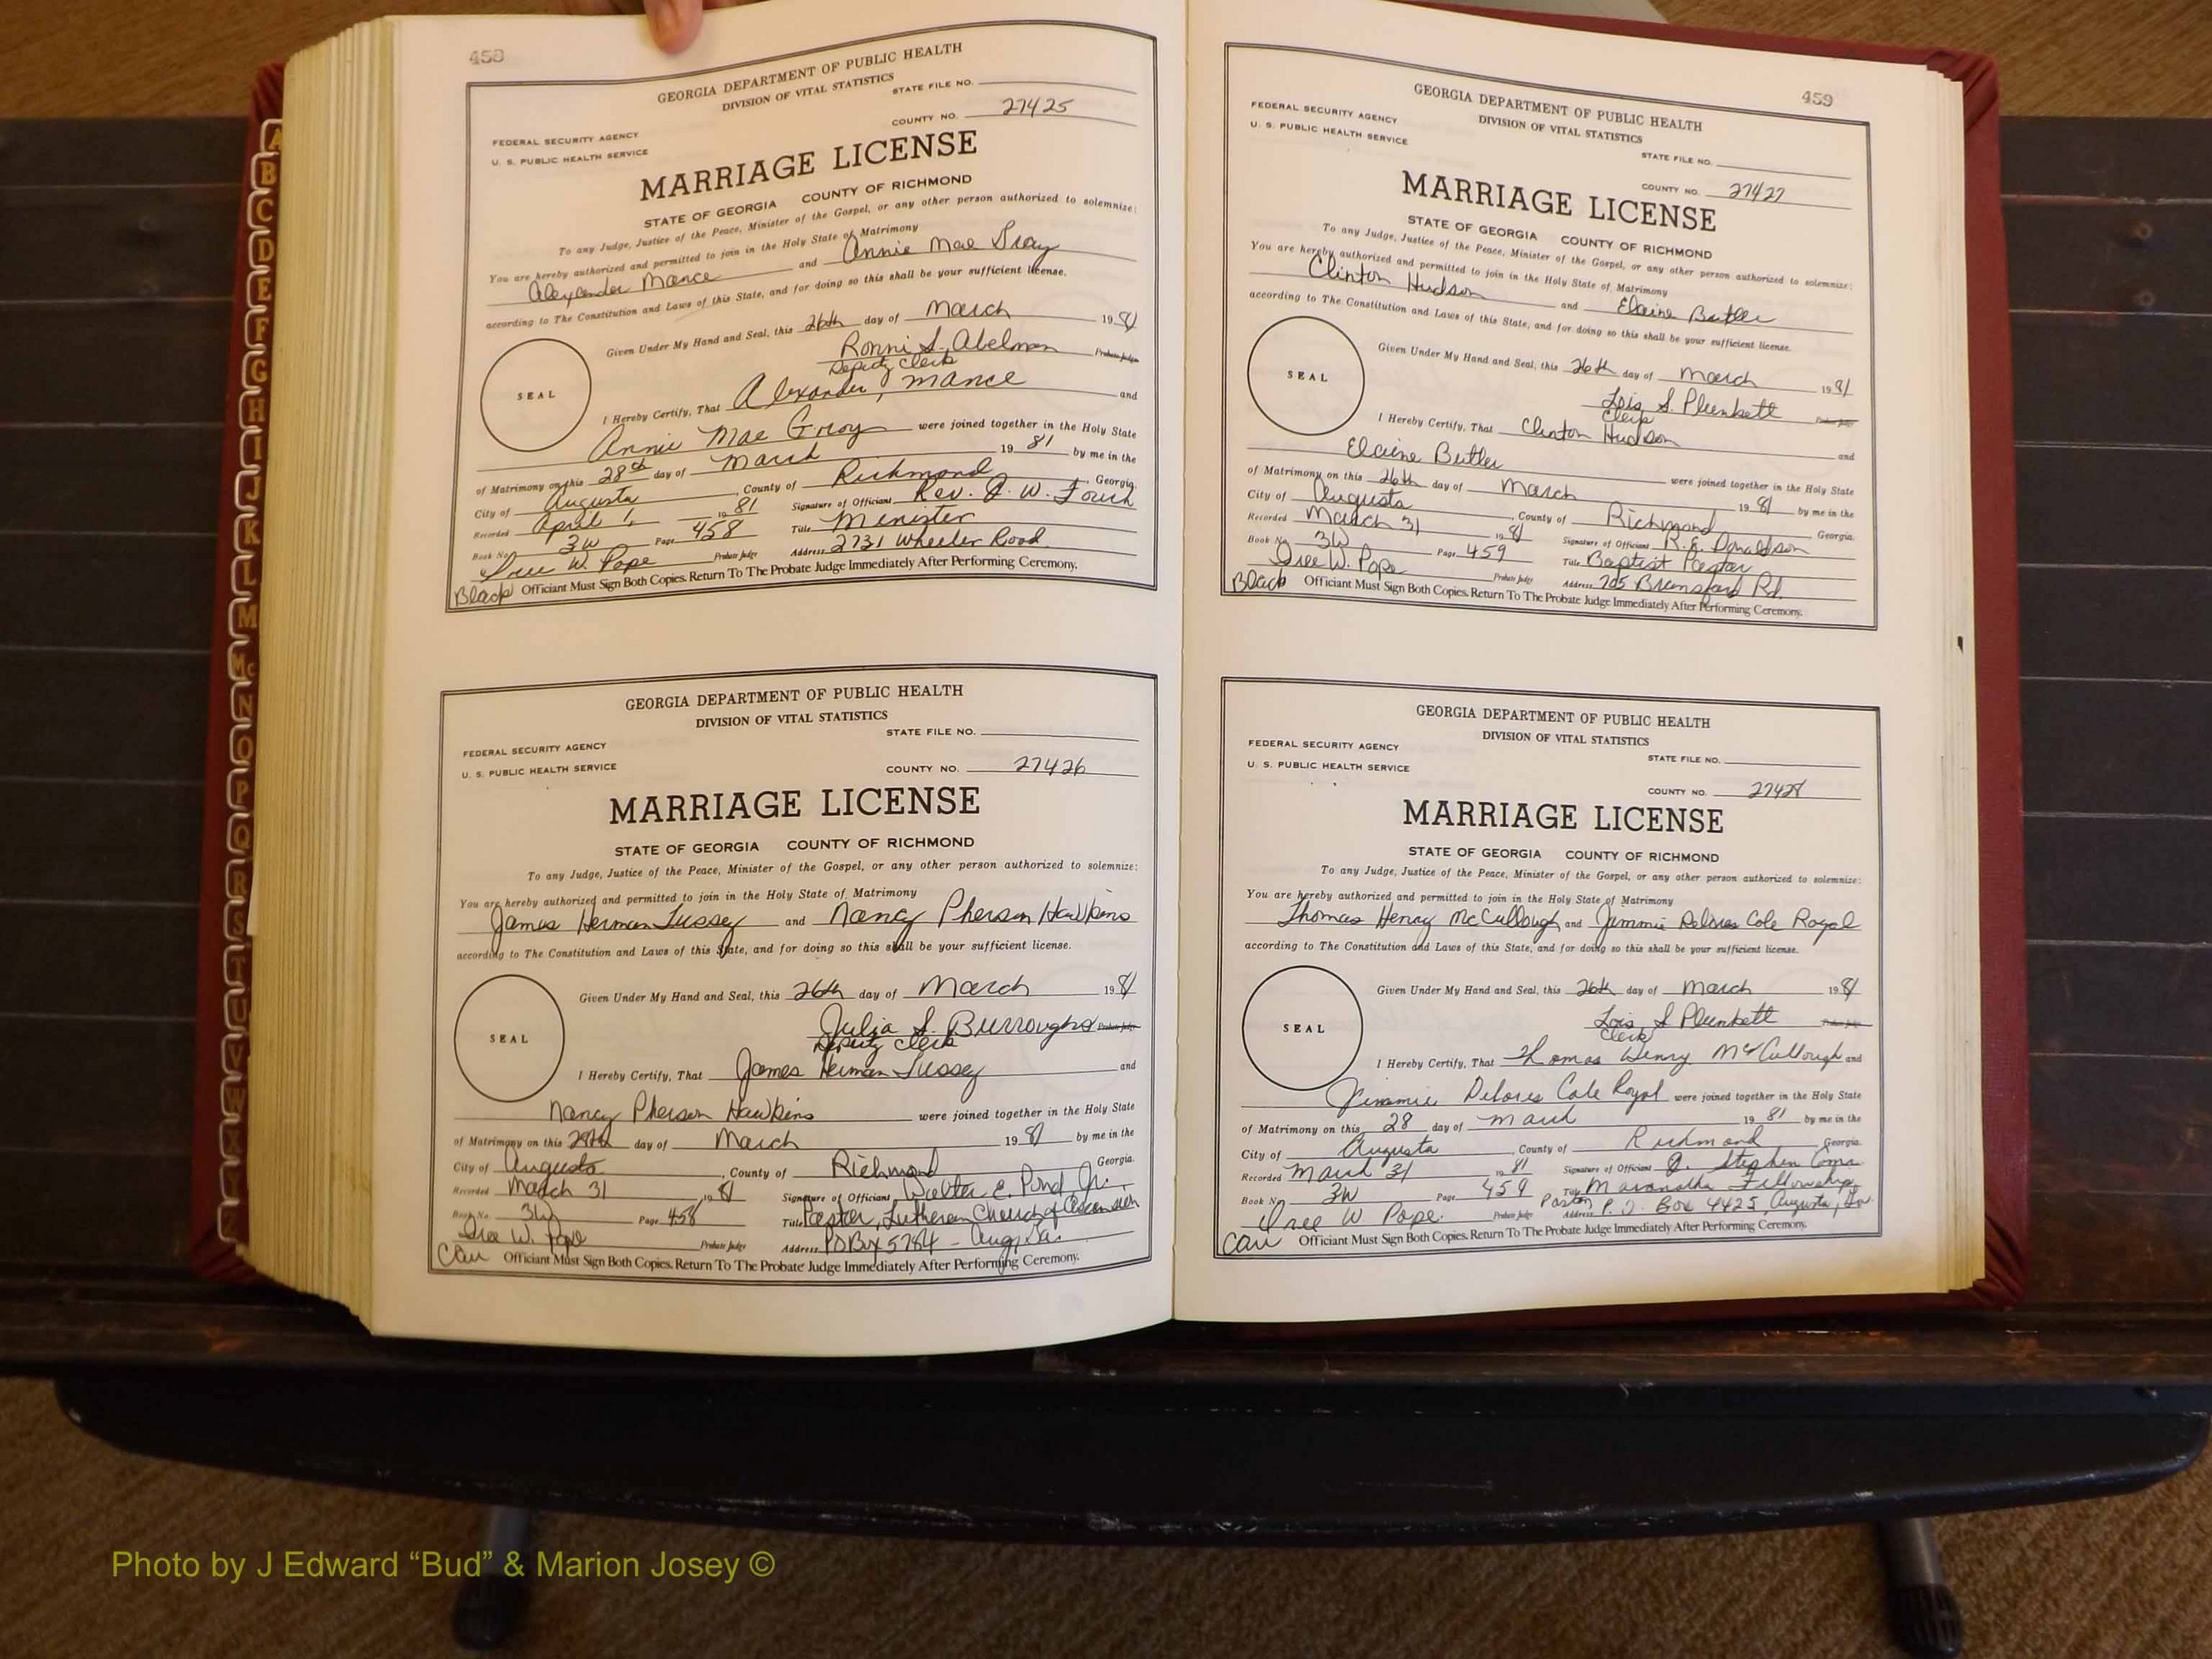 458
GEORGIA DEPARTMENT OF PUBLIC HEALTH
DIVISION OF VITAL STATISTICS
STATE FILE NO.
COUNTY NO. 27425
FEDERAL SECURITY AGENCY
U. S. PUBLIC HEALTH SERVICE
MARRIAGE LICENSE
STATE OF GEORGIA COUNTY OF RICHMOND
To any Judge, Justice of the Peace, Minister of the Gospel, or any other person authorized to solemnize:
You are hereby authorized and permitted to join in the Holy State of Matrimony
Alexander Mance and Annie Mae Gray
according to The Constitution and Laws of this State, and for doing so this shall be your sufficient license.
Given Under My Hand and Seal, this 26th day of March 1981
Ronni S. Abelman Probate Judge
Deputy Clerk
SEAL
I Hereby Certify, That Alexander Mance and
Annie Mae Gray were joined together in the Holy State
of Matrimony on this 28th day of March 1981 by me in the
City of Augusta, County of Richmond, Georgia.
Recorded April 1, 1981 Signature of Officiant Rev. J. W. Fouch
Book No. 3W Page 458 Title Minister
W. Pope Probate Judge Address 2731 Wheeler Road
Black Officiant Must Sign Both Copies. Return To The Probate Judge Immediately After Performing Ceremony.
GEORGIA DEPARTMENT OF PUBLIC HEALTH
DIVISION OF VITAL STATISTICS
STATE FILE NO.
FEDERAL SECURITY AGENCY
U. S. PUBLIC HEALTH SERVICE
COUNTY NO. 27426
MARRIAGE LICENSE
STATE OF GEORGIA COUNTY OF RICHMOND
To any Judge, Justice of the Peace, Minister of the Gospel, or any other person authorized to solemnize:
You are hereby authorized and permitted to join in the Holy State of Matrimony
James Herman Tussey and Nancy Pherson Hawkins
according to The Constitution and Laws of this State, and for doing so this shall be your sufficient license.
Given Under My Hand and Seal, this 26th day of March 1981
Julia S. Burroughs Probate Judge
Deputy Clerk
SEAL
I Hereby Certify, That James Herman Tussey and
Nancy Pherson Hawkins were joined together in the Holy State
of Matrimony on this day of March 1981 by me in the
City of Augusta, County of Richmond Georgia.
Recorded March 31, 1981 Signature of Officiant Walter E. Pond Jr.
Book No. 3W Page 458 Title Pastor, Lutheran Church of Ascension
W. Pope Probate Judge Address PO Box 5784 - Aug, Ga.
Cau Officiant Must Sign Both Copies. Return To The Probate Judge Immediately After Performing Ceremony.
459
GEORGIA DEPARTMENT OF PUBLIC HEALTH
DIVISION OF VITAL STATISTICS
FEDERAL SECURITY AGENCY
U. S. PUBLIC HEALTH SERVICE
STATE FILE NO.
COUNTY NO. 27427
MARRIAGE LICENSE
STATE OF GEORGIA COUNTY OF RICHMOND
To any Judge, Justice of the Peace, Minister of the Gospel, or any other person authorized to solemnize:
You are hereby authorized and permitted to join in the Holy State of Matrimony
Clinton Hudson and Elaine Butler
according to The Constitution and Laws of this State, and for doing so this shall be your sufficient license.
Given Under My Hand and Seal, this 26th day of March 1981
Lois S. Plunkett Probate Judge
Clerk
SEAL
I Hereby Certify, That Clinton Hudson and
Elaine Butler were joined together in the Holy State
of Matrimony on this 26th day of March 1981 by me in the
City of Augusta, County of Richmond Georgia.
Recorded March 31 1981 Signature of Officiant R.E. Donaldson
Book No. 3W Page 459 Title Baptist Pastor
W. Pope Probate Judge Address 705 Brunsford Rd.
Black Officiant Must Sign Both Copies. Return To The Probate Judge Immediately After Performing Ceremony.
GEORGIA DEPARTMENT OF PUBLIC HEALTH
DIVISION OF VITAL STATISTICS
FEDERAL SECURITY AGENCY
U. S. PUBLIC HEALTH SERVICE
STATE FILE NO.
COUNTY NO. 27428
MARRIAGE LICENSE
STATE OF GEORGIA COUNTY OF RICHMOND
To any Judge, Justice of the Peace, Minister of the Gospel, or any other person authorized to solemnize:
You are hereby authorized and permitted to join in the Holy State of Matrimony
Thomas Henry McCullough and Jimmie Delores Cole Royal
according to The Constitution and Laws of this State, and for doing so this shall be your sufficient license.
Given Under My Hand and Seal, this 26th day of March 1981
Lois S Plunkett Probate Judge
Clerk
SEAL
I Hereby Certify, That Thomas Henry McCullough and
Jimmie Delores Cole Royal were joined together in the Holy State
of Matrimony on this 28 day of March 1981 by me in the
City of Augusta, County of Richmond Georgia.
Recorded March 31 1981 Signature of Officiant Stephen
Book No. 3W Page 459 Title Maranatha Fellowship
Pastor
W Pope. Probate Judge Address P.O. Box 4425 Augusta, Ga.
Cau Officiant Must Sign Both Copies. Return To The Probate Judge Immediately After Performing Ceremony.
A
B
C
D
E
F
G
H
I
J
K
L
M
Mc
N
O
P
Q
R
S
T
U
V
W
X
Y
Z
Photo by J Edward “Bud” & Marion Josey ©